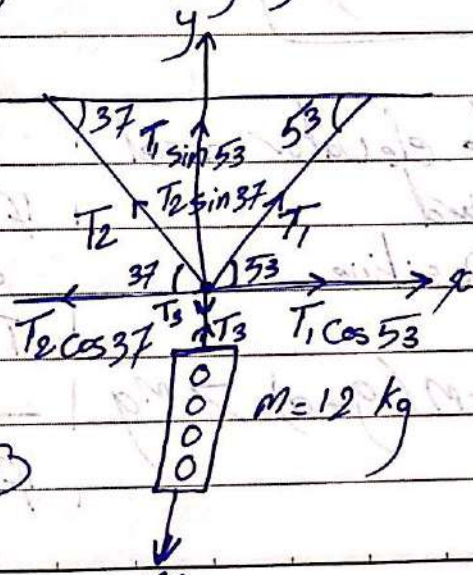 y
37 53
T₁ sin 53
T₂ T₂ sin 37 T₁
37 53 x
T₃ T₃
T₂ cos 37 T₁ Cos 53
m = 12 kg